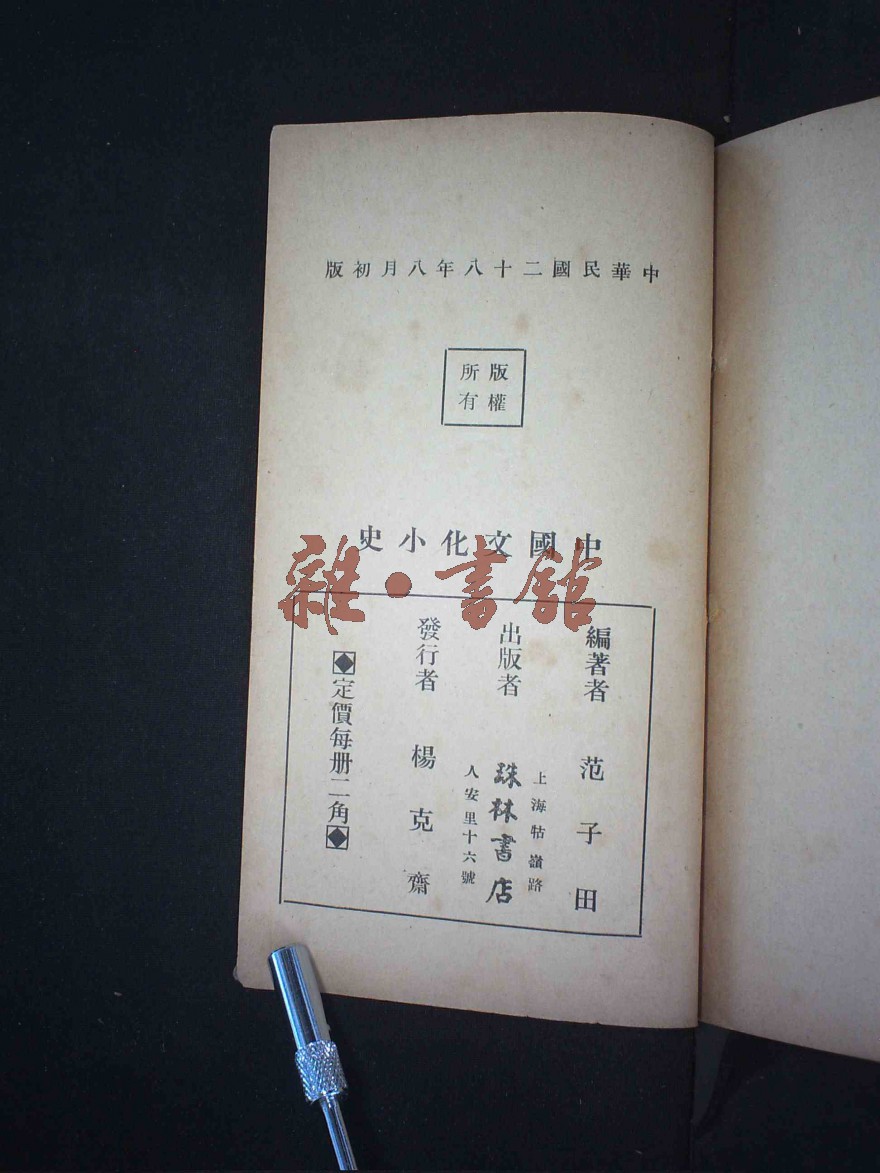 中華民國二十八年八月初版
版權
所有
中國文化小史
雜·書館
編著者 范子田
出版者 珠林書店
上海牯嶺路
人安里十六號
發行者 楊克齋
◆定價每册二角◆